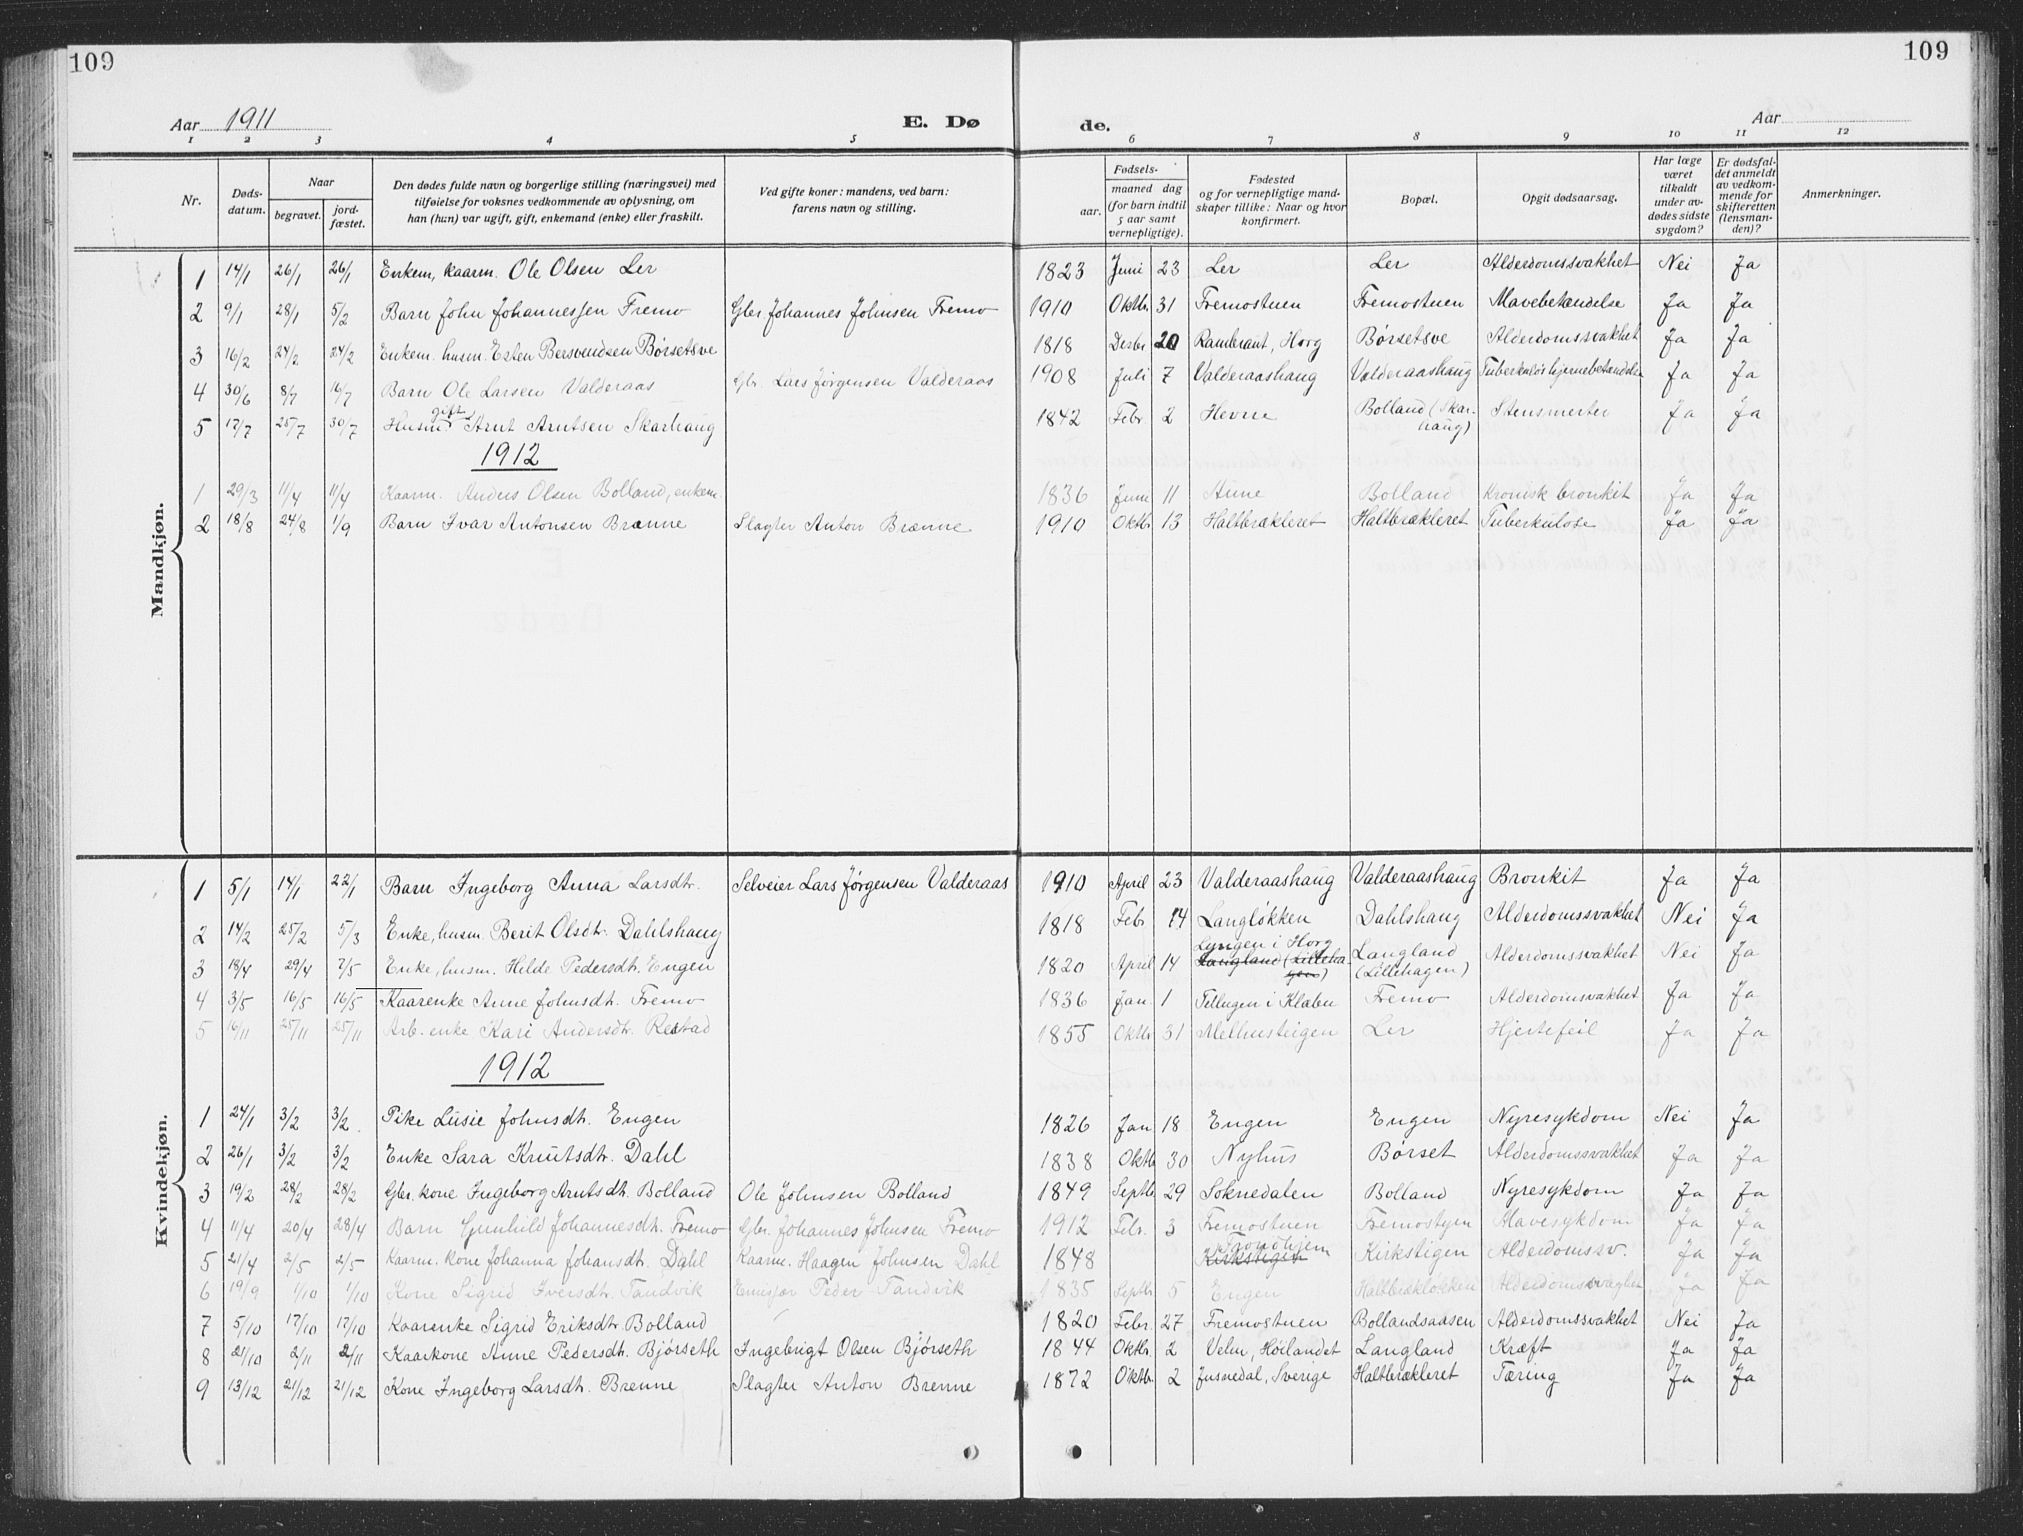 109
109
Aar 1911
E. Dø
de.
Aar
1 2 3 4 5 6 7 8 9 10 11 12
Nr.
Døds-
datum.
Naar
begravet.
jord-
fæstet.
Den dødes fulde navn og borgerlige stilling (næringsvei) med
tilføielse for voksnes vedkommende av oplysning, om
han (hun) var ugift, gift, enkemand (enke) eller fraskilt.
Ved gifte koner: mandens, ved barn:
farens navn og stilling.
Fødsels-
aar.
maaned dag
(for barn indtil
5 aar samt
vernepligtige).
Fødested
og for vernepligtige mand-
skaper tillike: Naar og hvor
konfirmert.
Bopæl.
Opgit dødsaarsag.
Har læge
været
tilkaldt
under av-
dødes sidste
sygdom?
Er dødsfal-
det anmeldt
av vedkom-
mende for
skifteretten
(lensman-
den)?
Anmerkninger.
Mandkjøn.
1 14/1 26/1 26/1 Enkem, kaarm. Ole Olsen Ler 1823 Juni 23 Ler Ler Alderdomssvakhet Nei Ja
2 9/1 28/1 5/2 Barn John Johannessen Fremo Gbr. Johannes Johnsen Fremo 1910 Oktbr 31 Fremostuen Fremostuen Mavebetændelse Ja Ja
3 16/2 24/2 24/2 Enkem. husm. Esten Bersvendsen Børsetsve 1818 Desbr 20 Rambraut, Horg Børsetsve Alderdomssvakhet Ja Ja
4 30/6 8/7 16/7 Barn Ole Larsen Valderaas Gbr. Lars Jørgensen Valderaas 1908 Juli 7 Valderaashaug Valderaashaug Tuberkuløs hjernebetændelse Ja Ja
5 17/7 25/7 30/7 Husm. gift Arnt Arntsen Skarhaug 1842 Febr 2 Hevne Bolland (Skar-
haug) Stensmerter Ja Ja
1912
1 29/3 11/4 11/4 Kaarm. Anders Olsen Bolland, enkem. 1836 Juni 11 Aune Bolland Kronisk bronkit Ja Ja
2 18/8 24/8 1/9 Barn Ivar Antonsen Brænne Slagter Anton Brænne 1910 Oktbr 13 Haltbrækleret Haltbrækleret Tuberkulose Ja Ja
Kvindekjøn.
1 5/1 14/1 22/1 Barn Ingeborg Anna Larsdtr. Selveier Lars Jørgensen Valderaas 1910 April 23 Valderaashaug Valderaashaug Bronkit Ja Ja
2 14/2 25/2 5/3 Enke, husm. Berit Olsdtr. Dahlshaug 1818 Febr 14 Langløkken Dahlshaug Alderdomssvakhet Nei Ja
3 18/4 29/4 7/5 Enke, husm. Hilde Pedersdtr. Engen 1820 April 14 Lyngen i Horg
Langland (Lilleha-
gen) Langland
(Lillehagen) Alderdomssvakhet Nei Ja
4 3/5 16/5 16/5 Kaarenke Anne Johnsdtr. Fremo 1836 Jan. 1 Tellugen i Klæbu Fremo Alderdomsvakhet Ja Ja
5 16/11 25/11 25/11 Arb. enke Kari Andersdtr. Restad 1855 Oktbr 31 Melhusteigen Ler Hjertefeil Ja Ja
1912
1 24/1 3/2 3/2 Pike Lusie Johnsdtr. Engen 1826 Jan 18 Engen Engen Nyresykdom Nei Ja
2 26/1 3/2 3/2 Enke Sara Knutsdtr. Dahl 1838 Oktb 30 Nyhus Børset Alderdomssvakhet Ja Ja
3 19/2 28/2 28/2 Gbr. kone Ingeborg Arntsdtr. Bolland Ole Johnsen Bolland 1849 Septbr 29 Soknedalen Bolland Nyresykdom Ja Ja
4 11/4 20/4 28/4 Barn Gunhild Johannesdtr. Fremo Gbr. Johannes Johnsen Fremo 1912 Febr. 3 Fremostuen Fremostuen Mavesykdom Ja Ja
5 21/4 2/5 2/5 Kaarm. kone Johanna Johansdtr. Dahl Kaarm. Haagen Johnsen Dahl 1848 Trondhjem
Kirkstigen Kirkstigen Alderdomssv. Ja Ja
6 19/9 1/10 1/10 Kone Sigrid Iversdtr. Tandvik Emisær Peder Tandvik 1835 Septbr 5 Engen Haltbrækløkken Alderdomssvaghet Ja Ja
7 5/10 17/10 17/10 Kaarenke Sigrid Eriksdtr. Bolland 1820 Febr. 27 Fremostuen Bollandsaasen Alderdomssvakhet Nei Ja
8 21/10 2/11 2/11 Kaarkone Anne Pedersdtr. Bjørseth Ingebrigt Olsen Bjørseth 1844 Oktbr. 2 Velm, Høilandet Langland Kræft Ja Ja
9 13/12 21/12 21/12 Kone Ingeborg Larsdtr. Brenne Slagter Anton Brenne 1872 Oktbr 2 Jusnedal, Sverige Haltbrækleret Tæring Ja Ja